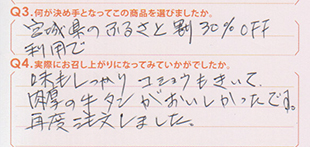 Q3.何が決め手となってこの商品を選びましたか。
宮城県のふるさと割30%OFF
利用で
Q4.実際にお召し上がりになってみていかがでしたか。
味もしっかりコショウもきいて、
肉厚の牛タンがおいしかったです。
再度注文しました。